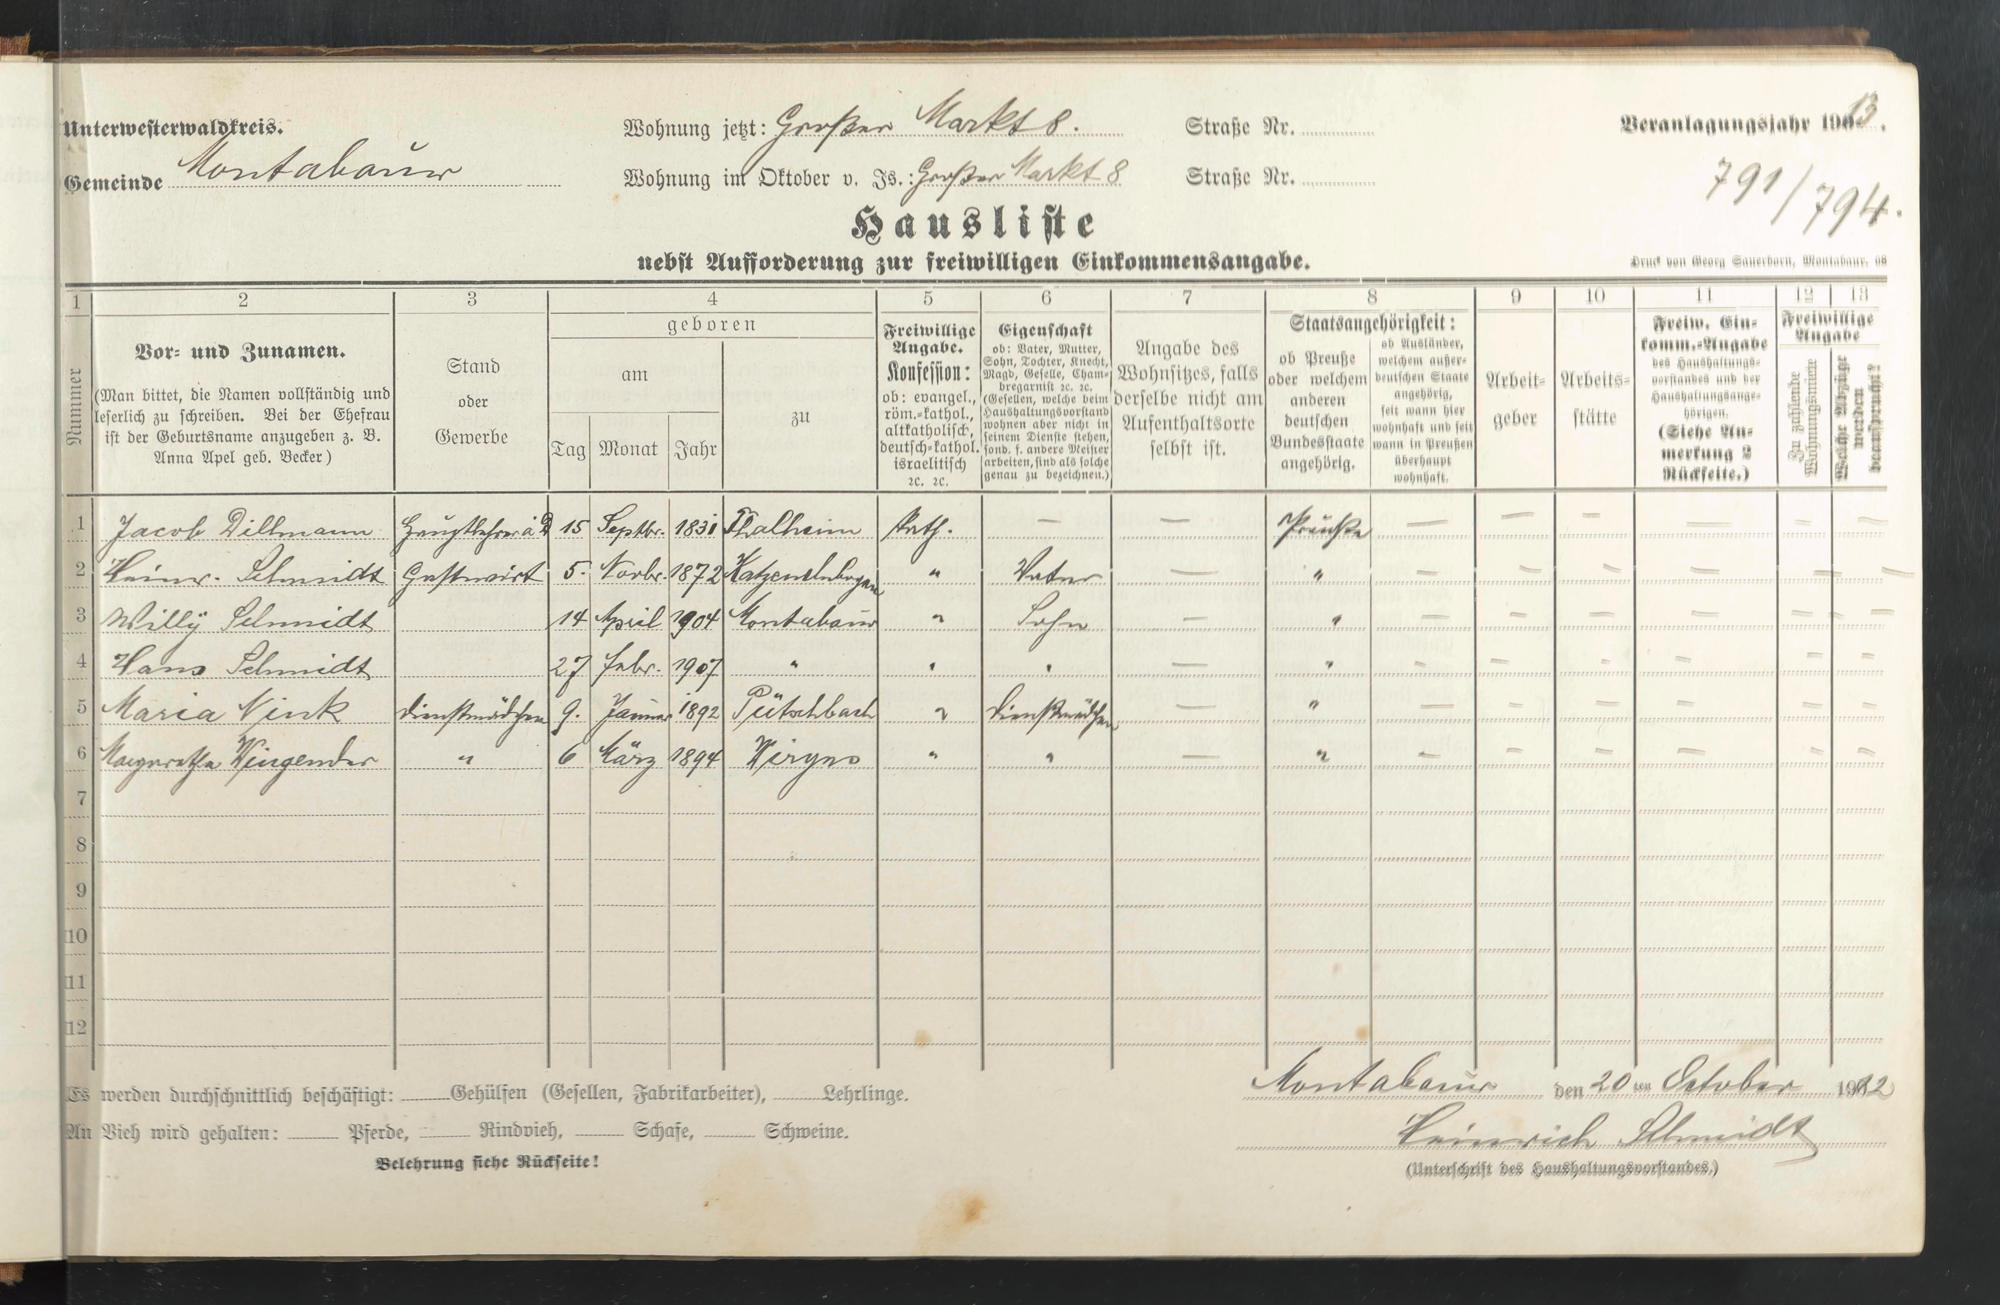 Unterwesterwaldkreis.
Gemeinde Montabaur
Wohnung jetzt: Großer Markt 8. Straße Nr.
Wohnung im Oktober v. Js.: Großer Markt 8 Straße Nr.
Veranlagungsjahr 1913.
791/794.
Hausliste
nebst Aufforderung zur freiwilligen Einkommensangabe.
Druck von Georg Sauerborn, Montabaur. 08
1 2 3 4 5 6 7 8 9 10 11 12 13
Nummer
Vor- und Zunamen.
(Man bittet, die Namen vollständig und
leserlich zu schreiben. Bei der Ehefrau
ist der Geburtsname anzugeben z. B.
Anna Apel geb. Becker)
Stand
oder
Gewerbe
geboren
am
Tag Monat Jahr
zu
Freiwillige
Angabe.
Konfession:
ob: evangel.,
röm.-kathol.,
altkatholisch,
deutsch-kathol.
israelitisch
ꝛc. ꝛc.
Eigenschaft
ob: Vater, Mutter,
Sohn, Tochter, Knecht,
Magd, Geselle, Cham-
bregarnist ꝛc. ꝛc.
(Gesellen, welche beim
Haushaltungsvorstand
wohnen aber nicht in
seinem Dienste stehen,
sond. f. andere Meister
arbeiten, sind als solche
genau zu bezeichnen.)
Angabe des
Wohnsitzes, falls
derselbe nicht am
Aufenthaltsorte
selbst ist.
Staatsangehörigkeit:
ob Preuße
oder welchem
anderen
deutschen
Bundesstaate
angehörig.
ob Ausländer,
welchem außer-
deutschen Staate
angehörig,
seit wann hier
wohnhaft und seit
wann in Preußen
überhaupt
wohnhaft.
Arbeit-
geber
Arbeits-
stätte
Freiw. Ein-
komm.-Angabe
des Haushaltungs-
vorstandes und der
Haushaltungsange-
hörigen.
(Siehe An-
merkung 2
Rückseite.)
Freiwillige
Angabe
Zu zahlende
Wohnungsmiete
Welche Abzüge
werden
beansprucht?
1 Jacob Dillmann Hauptlehrer a D 15 Septbr. 1831 Thalheim kath. — — Preuße — — — — — —
2 Heinr. Schmidt Gastwirt 5. Novbr. 1872 Katzenelnbogen " Vater — " — — — — — —
3 Willÿ Schmidt 14 April 1904 Montabaur " Sohn — " — — — — — —
4 Hans Schmidt 27 Febr. 1907 " " " — " — — — — — —
5 Maria Nink Dienstmädchen 9. Januar 1892 Pütschbach " Dienstmädchen — " — — — — — —
6 Margaretha Wingender " 6 März 1894 Wirges " " — " — — — — — —
7
8
9
10
11
12
Es werden durchschnittlich beschäftigt: Gehülfen (Gesellen, Fabrikarbeiter), Lehrlinge.
An Vieh wird gehalten: Pferde, Rindvieh, Schafe, Schweine.
Belehrung siehe Rückseite!
Montabaur den 20ten October 1912
Heinrich Schmidt
(Unterschrift des Haushaltungsvorstandes.)